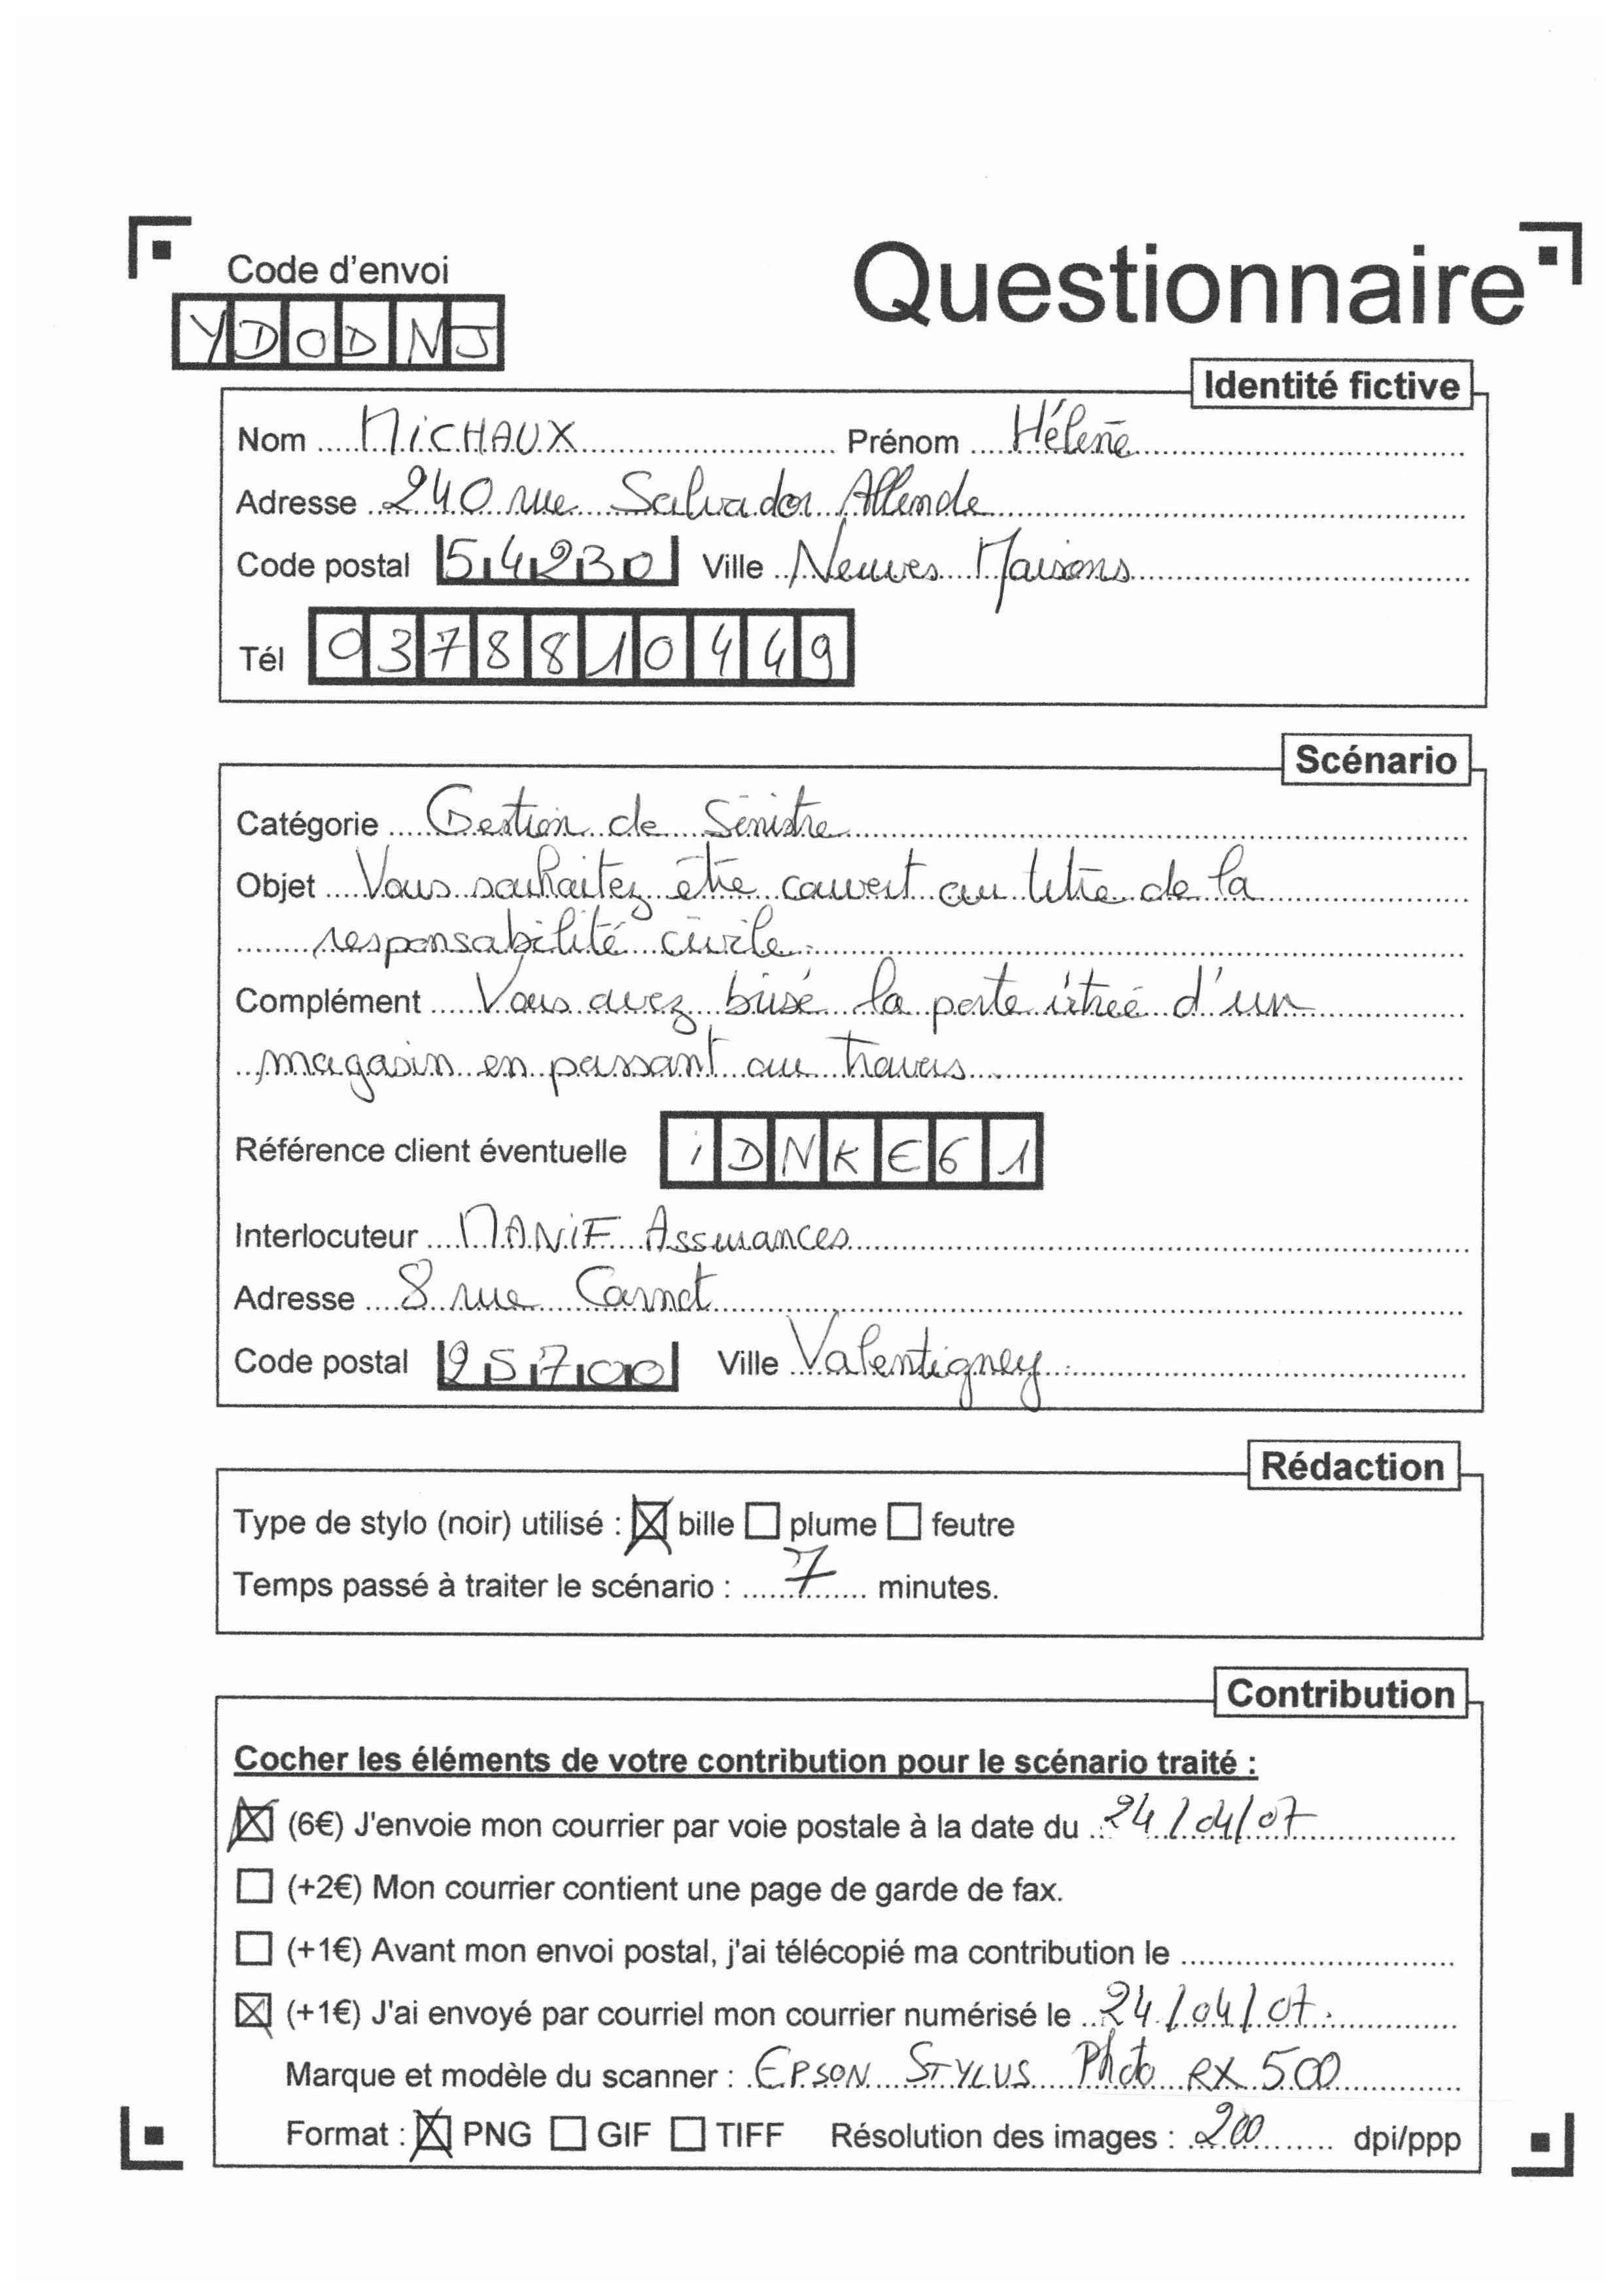 Code d'envoi
YDODNJ
Questionnaire
Identité fictive
Nom MICHAUX Prénom Hélène
Adresse 240 rue Salvador Allende
Code postal 54230 Ville Neuves Maisons
Tél 0378810449
Scénario
Catégorie Gestion de Sinistre
Objet Vous souhaitez être couvert au titre de la
responsabilité civile.
Complément Vous avez brisé la porte vitrée d'un
magasin en passant au travers
Référence client éventuelle iDNKE61
Interlocuteur MANiF Assurances
Adresse 8 rue Carnot
Code postal 25700 Ville Valentigney
Rédaction
Type de stylo (noir) utilisé : ☒ bille ☐ plume ☐ feutre
Temps passé à traiter le scénario : 7 minutes.
Contribution
Cocher les éléments de votre contribution pour le scénario traité :
☒ (6€) J'envoie mon courrier par voie postale à la date du 24/04/07
☐ (+2€) Mon courrier contient une page de garde de fax.
☐ (+1€) Avant mon envoi postal, j'ai télécopié ma contribution le
☒ (+1€) J'ai envoyé par courriel mon courrier numérisé le 24/04/07.
Marque et modèle du scanner : EPSON STYLUS Photo RX 500
Format : ☒ PNG ☐ GIF ☐ TIFF Résolution des images : 200 dpi/ppp